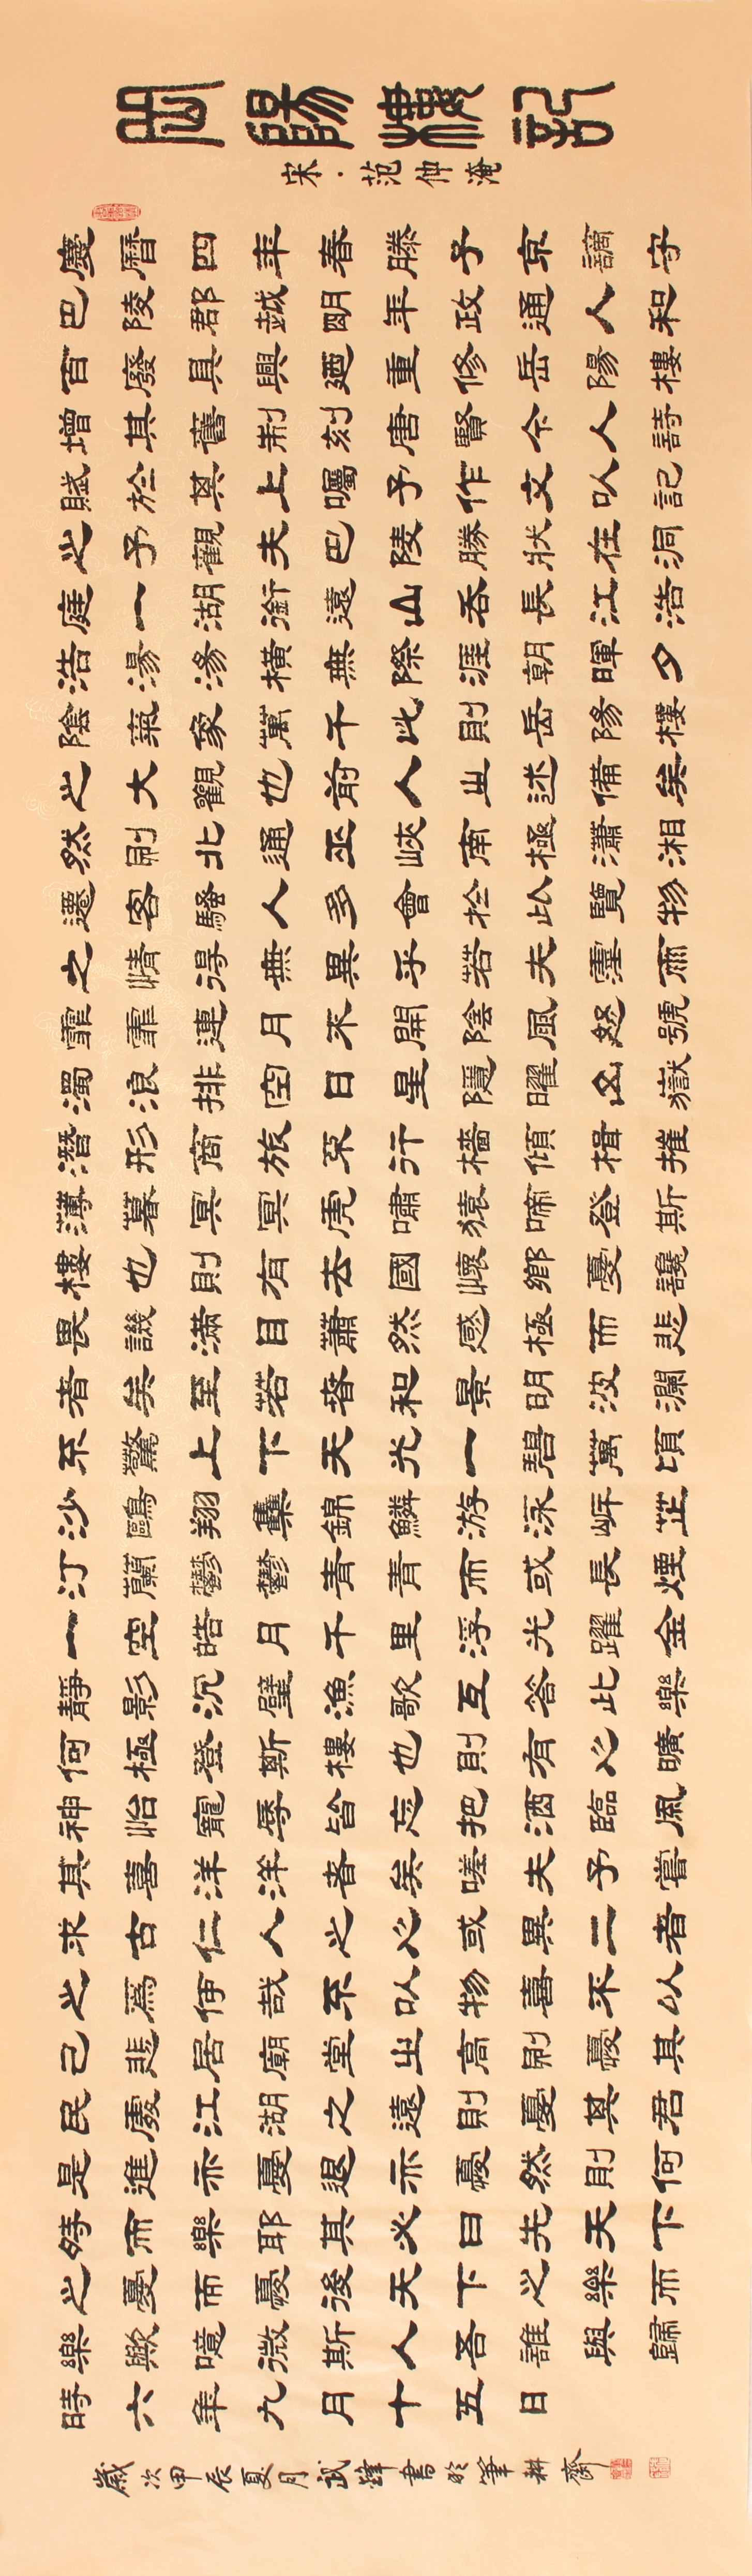 岳陽樓記
宋·范仲淹
慶曆四年春滕子京謫守
巴陵郡越明年政通人和
百廢具興廼重修岳陽樓
增其舊制刻唐賢今人詩
賦於其上囑予作文以記
之予觀夫巴陵勝狀在洞
庭一湖銜遠山吞長江浩
浩湯湯橫無際涯朝暉夕
陰氣象萬千此則岳陽樓
之大觀也前人之述備矣
然則北通巫峽南極瀟湘
遷客騷人多會於此覽物
之情得無異乎若夫霪雨
霏霏連月不開陰風怒號
濁浪排空日星隱曜山嶽
潛形商旅不行檣傾楫摧
薄暮冥冥虎嘯猿啼登斯
樓也則有去國懷鄉憂讒
畏譏滿目蕭然感極而悲
者矣至若春和景明波瀾
不驚上下天光一碧萬頃
沙鷗翔集錦鱗游泳岸芷
汀蘭鬱鬱青青而或長煙
一空皓月千里浮光躍金
靜影沉璧漁歌互答此樂
何極登斯樓也則有心曠
神怡寵辱皆忘把酒臨風
其喜洋洋者矣嗟夫予嘗
求古仁人之心或異二者
之爲何哉不以物喜不以
己悲居廟堂之高則憂其
民處江湖之遠則憂其君
是進亦憂退亦憂然則何
時而樂耶其必曰先天下
之憂而憂後天下之樂而
樂歟噫微斯人吾誰與歸
時六年九月十五日
歲次甲辰夏月武鋒書於筆耕齋